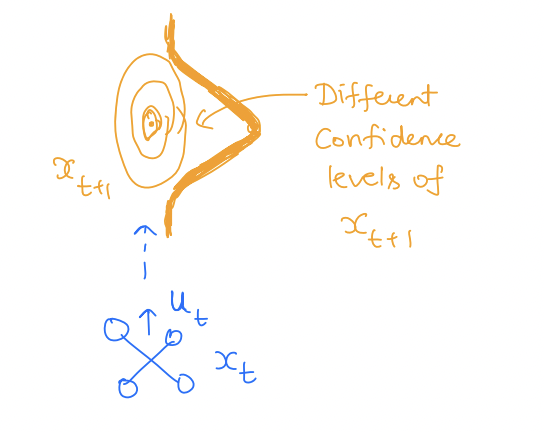 Different
Confidence
levels of
x_{t+1}
x_{t+1}
u_t
x_t